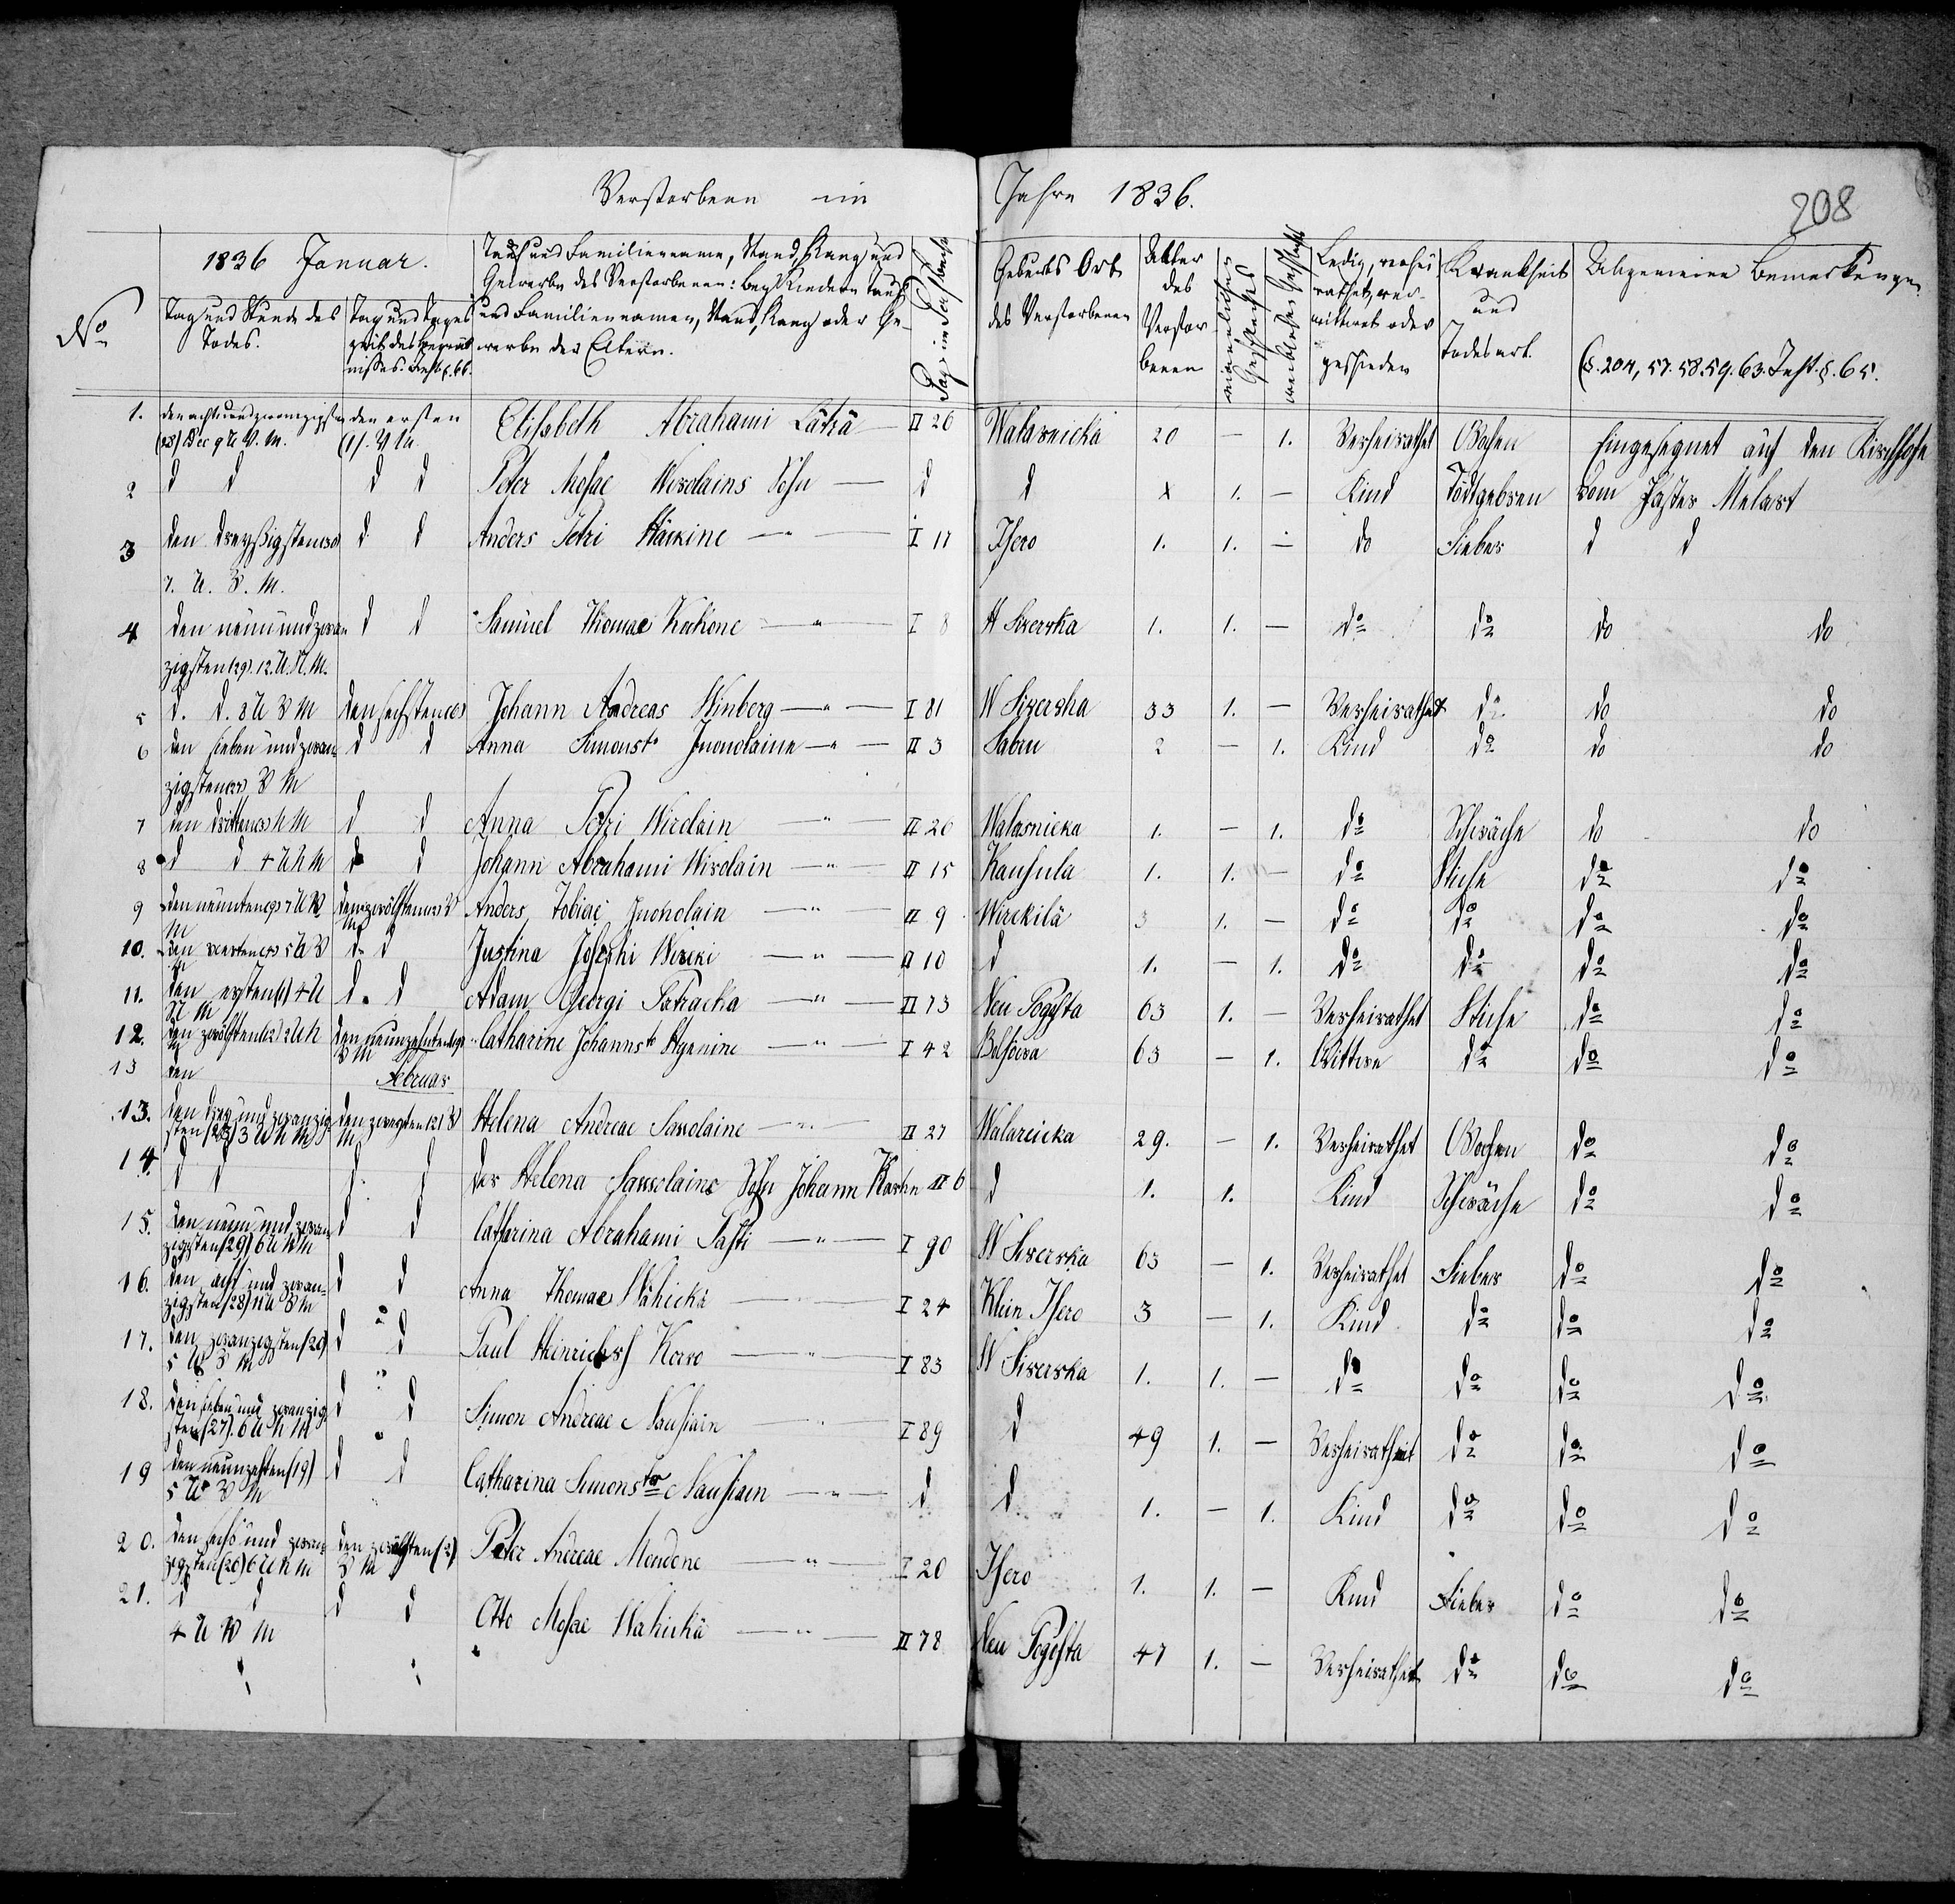 Verstorbene im Jahre 1836.
208
No
1836 Januar.
Tag und Stunde des Todes.
Tag und Tages zeit des Begräb nisses.
Tauf und Familienname, Stand, Rang und
Gewerbe des Verstorbenen: bey Kindern Tauf
und Familiennamen, Stand, Rang oder Ge-
werbe der Eltern.
Geburts Ort des Verstorbenen
Alter des Verstor benen
männlichen Geschlechts
weiblichen Geschlechts
Ledig, verhei rathet, ver- wittwet oder geschieden
Krankheit und Todesart.
Allgemeine Bemerkungen
(§. 204, 57. 58. 59. 63. Inst. §. 65.
1. den acht und zwanzigsten (28) Dec 9 U V. M. den ersten (1). V M. Elisabeth Abrahami Läträ II 26 Walasnicka 20 — 1. Verheirathet Wochen Eingesegnet auf den Kirchhofe
2 d d d d Peter Mosae Wirolains Sohn — d d X 1. — Kind Todtgeboren vom Pastor Melart
3 den dreyßigsten (30) 7. U. V. M. d d Anders Petri Häikine — I 17 Isero 1. 1. — do Fieber d d
4 den neun und zwan zigsten (29). 12. U N. M. d d Samuel Thomae Kokkone — I 8 N Siverska 1. 1. — do do do do
5 d. d. 8 U V M den sechsten (6) Johann Andreas Winberg — I 81 W Siverska 33 1. — Verheirathet do do do
6 den sieben und zwan zigsten (27) V M d d Anna Simonst. Inonolaine — II 3 Sabru 2 — 1. Kind do do do
7 den dritten (3) N M d d Anna Petri Wirolain — II 26 Walasnicka 1. — 1. do Schwäche do do
8 d d 4 U N M d d Johann Abrahami Wirolain — II 15 Kausula 1. 1. — do Stiche do do
9 den neunten (9) 7 U V M den zwölften (12) V M Anders Tobiae Inonolain — II 9 Wirekilä 3 1. — do do do do
10. den vierten (4) 5 U V M d d Justina Josephi Wireki — II 10 d 1. — 1. do do do do
11. den ersten (1) 4 U N M d d Adam Georgi Patracka — II 73 Neu Pogosta 63 1. — Verheirathet Stiche do do
12. den zwölften (12) 2 U N M den neunzehnten (19) V M Catharine Johannst. Hyenine — I 42 Bolsowa 63 — 1. Wittwe do do do
13 den
Februar
13. den drey und zwanzig sten (23) 3 U N M den zweyten (2) V M Helena Andreae Sawolaine — II 27 Walarcicka 29. — 1. Verheirathet Wochen do do
14. d d d. d der Helena Sawolaine Sohn Johann II 6 d 1. 1. Kind Schwäche do do
15. den neun und zwan zigsten (29) 6 U N M d d Catharina Abrahami Pasti — I 90 W Siverska 63 — 1. Verheirathet Fieber do do
16. den acht und zwan- zigsten (28) 11 U V M d d Anna Thomae Wähickä — I 24 Klein Isero 3 — 1. Kind do do do
17. den zwanzigsten (20) 5 U V M d d Paul Heinrichs Korvo — I 83 W Siverska 1. 1. — do do do do
18. den sieben und zwanzig sten (27). 6 U N M d d Simon Andreae Nausiain — I 89 d 49 1. — Verheirathet do do do
19 den neunzehnten (19) 5 U V M d d Catharina Simonstr Nausiain — d d 1. — 1. Kind do do do
20. den sechs und zwan zigsten (26) 6 U N M den zwölften (12) V M Peter Andreae Mondone — I 20 Isero 1. 1. — Kind Fieber do do
21. d d 4 U N M d d Otto Mosae Wahickä — II 78 Neu Pogosta 47 1. — Verheirathet do do do